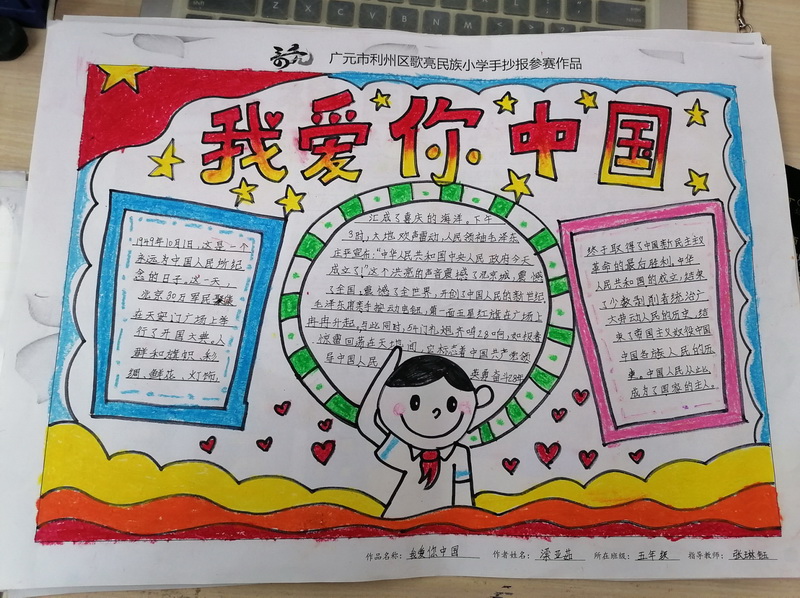 广元市利州区歌亮民族小学手抄报参赛作品
我爱你中国
1949年10月1日,这是一个
永远为中国人民所纪
念的日子,这一天,
北京30万军民聚集
在天安门广场上举
行了开国大典,人
群和旗帜、彩
绸、鲜花、灯饰,
汇成了喜庆的海洋。下午
3时,大地欢声雷动,人民领袖毛泽东
庄严宣布:“中华人民共和国中央人民政府今天
成立了!”这个洪亮的声音震撼了北京城,震撼
了全国,震撼了全世界,开创了中国人民的新世纪
毛泽东用手按动电钮,第一面五星红旗在广场上
冉冉升起,与此同时,54门礼炮齐鸣28响,如报春
惊雷回荡在天地间,它标志着中国共产党领
导中国人民 英勇奋斗28年
终于取得了中国新民主主义
革命的最后胜利,中华
人民共和国的成立,结束
了少数剥削者统治广
大劳动人民的历史,结
束了帝国主义奴役中国
中国各族人民的历
史。中国人民从此
成为了国家的主人。
作品名称:我爱你中国 作者姓名:梁亚茹 所在班级:五年级 指导教师:张琳钰